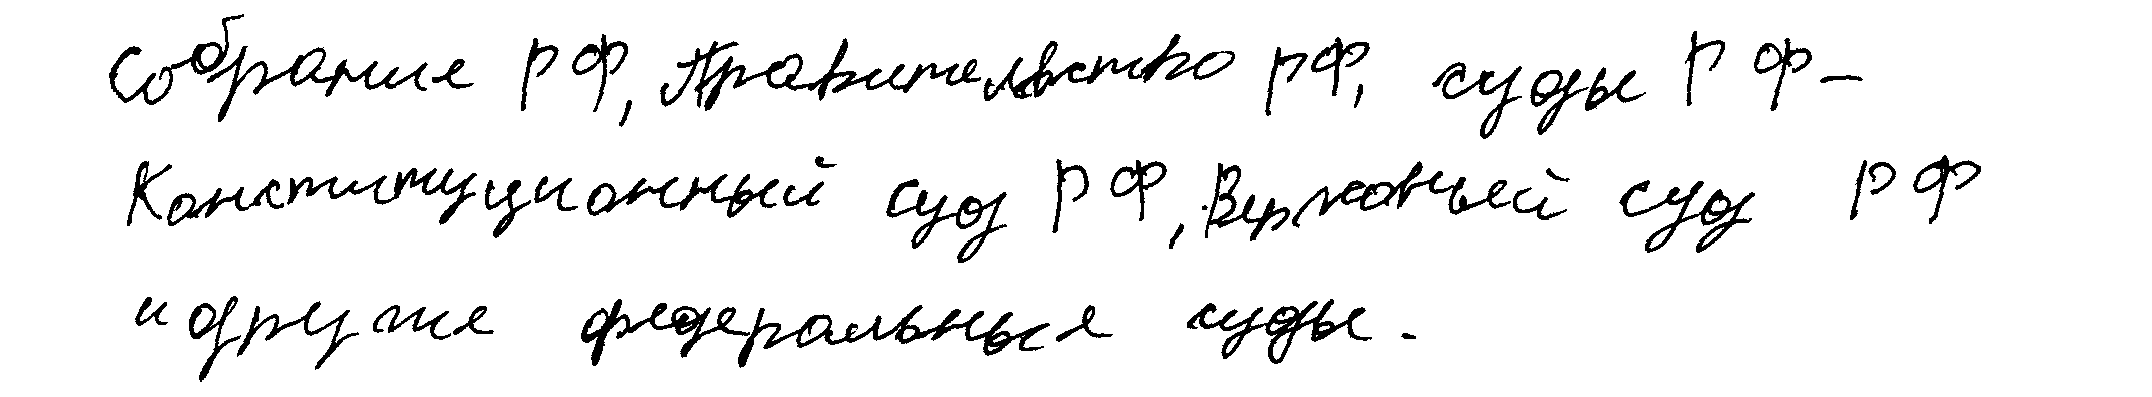 Собрание РФ, Правительство РФ, суды РФ -
Конституционный суд РФ, Верховный суд РФ
и другие федеральные суды.